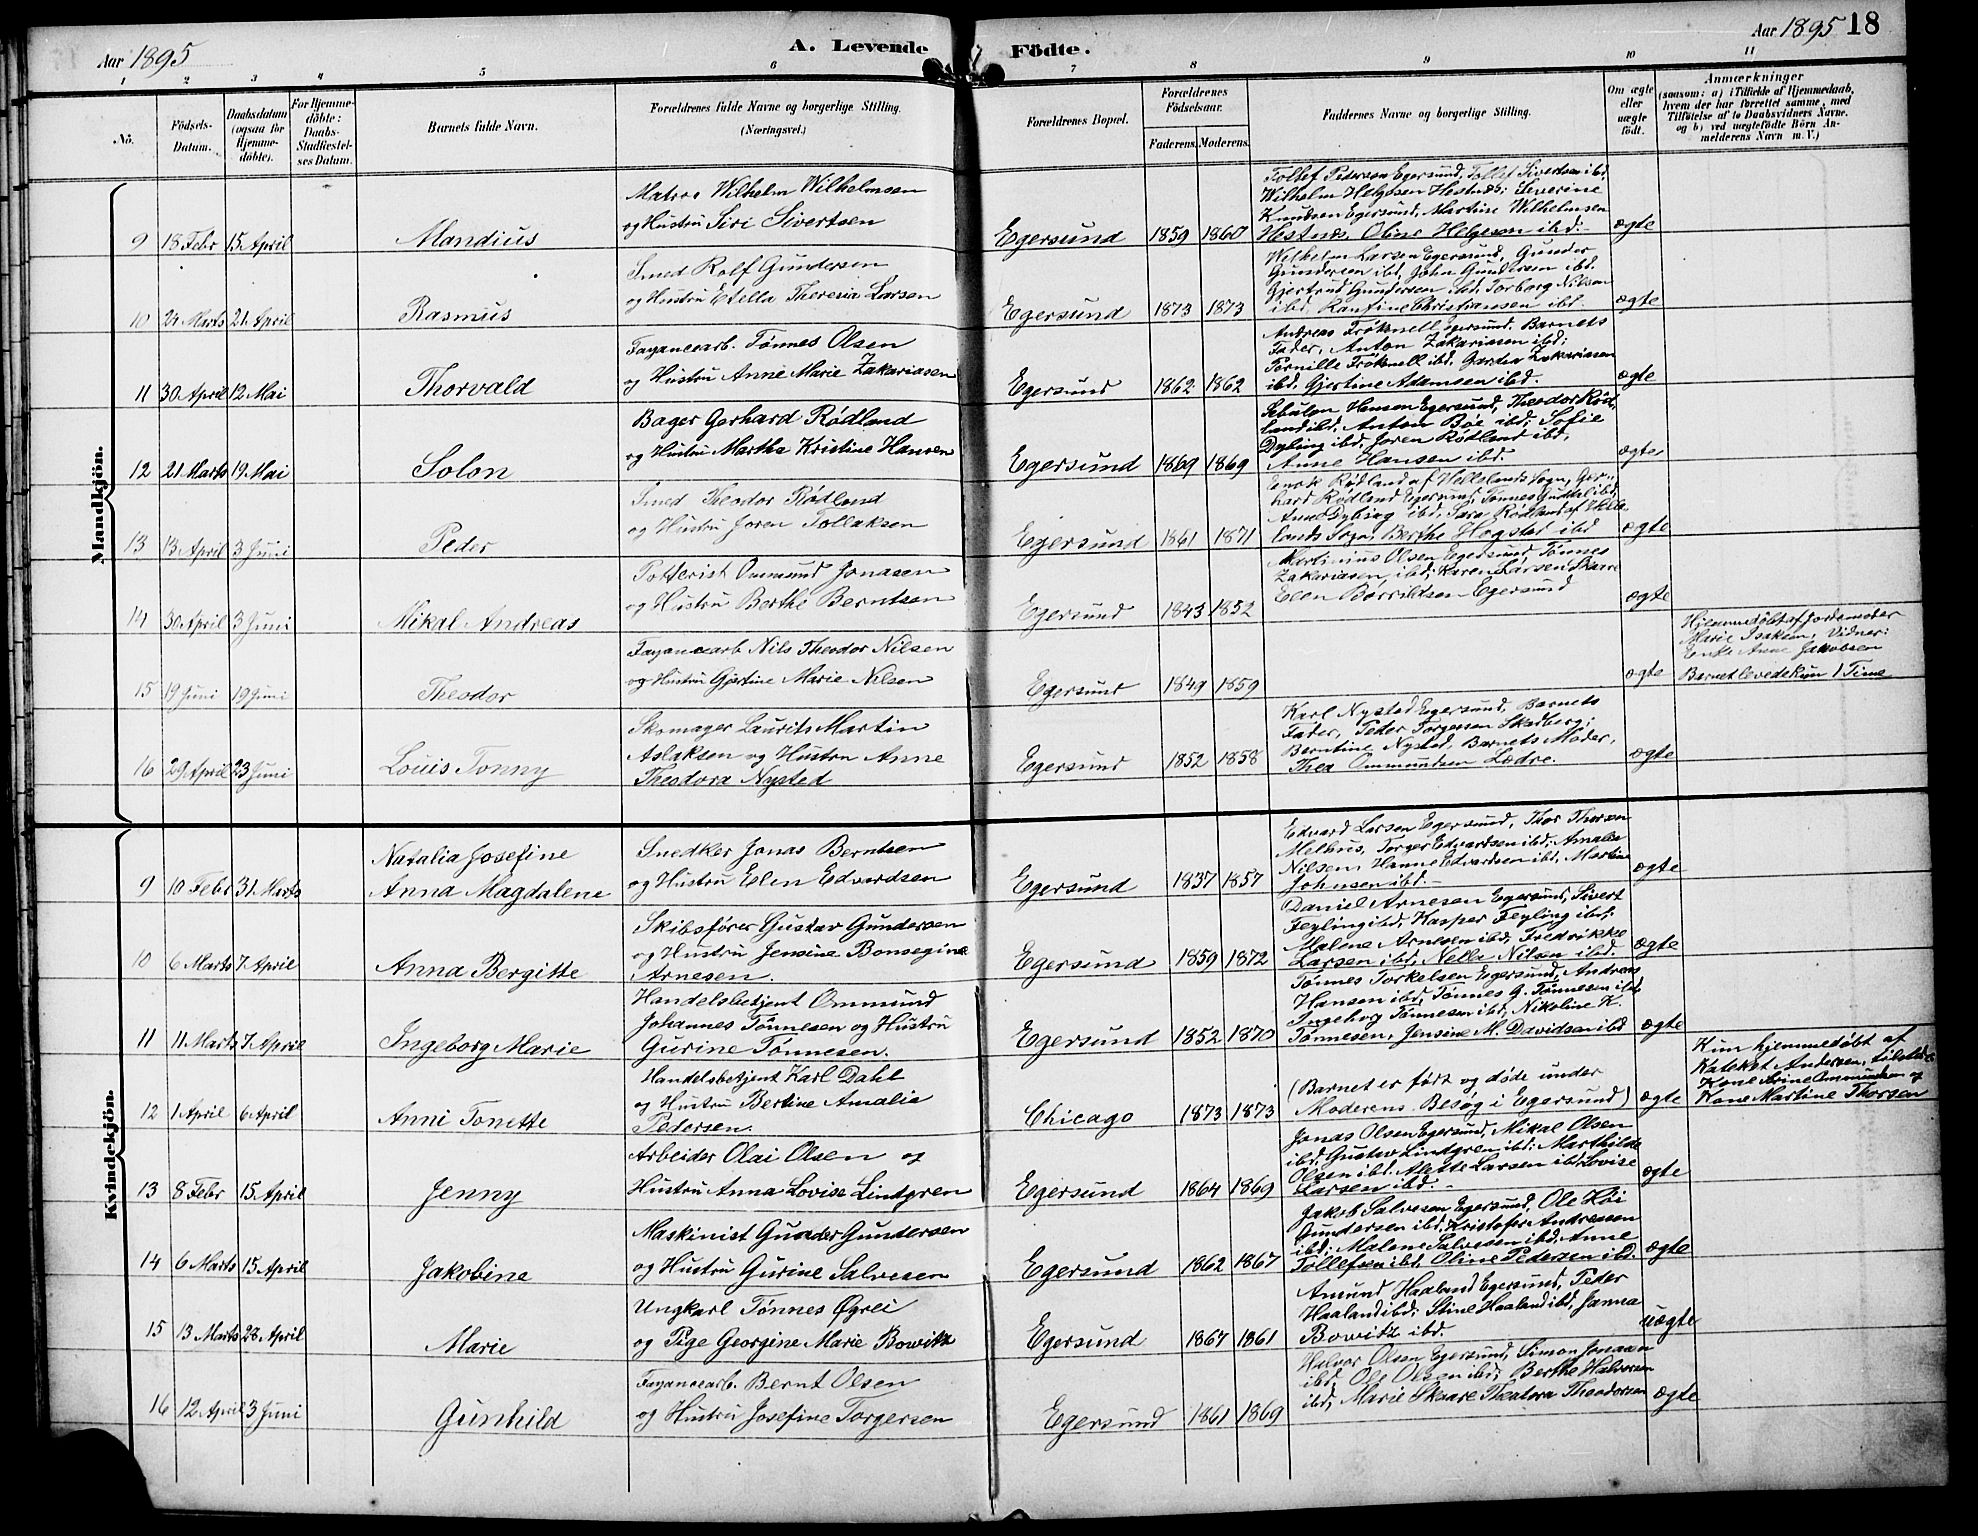 Aar 1895
A. Levende Födte.
Aar 1895 18
1 2 3 4 5 6 7 8 9 10 11
No.
Födsels-Datum.
Daabsdatum (ogsaa for Hjemme-döbte).
For Hjemme-döbte: Daabs-Stadfæstel-ses Datum.
Barnets fulde Navn.
Forældrenes fulde Navne og borgerlige Stilling. (Næringsvei.)
Forældrenes Bopæl.
Forældrenes Födselsaar.
Faderens. Moderens.
Faddernes Navne og borgerlige Stilling.
Om ægte eller uægte födt.
Anmærkninger (saasom: a) i Tilfælde af Hjemmedaab, hvem der har forrettet samme, med Tilföielse af to Daabsvidners Navne. og b) ved uægtefödte Börn An-melderens Navn m. V.)
Mandkjön.
9 18 Febr 15. April Mandius
Matros Wilhelm Wilhelmsen
og Hustru Siri Sivertsen
Egersund 1859 1860
Tollef Pedersen Egersund, Tollef Sivertsen ibd,
Wilhelm Helgesen Hestnes; Severine
Knudsen Egersund, Martine Wilhelmsen
Hestnes, Oline Helgesen ibd.
ægte
10 24 Marts 21 April Rasmus
Smed Rolf Gundersen
og Hustru Etella Theresia Larsen
Egersund 1873 1873
Wilhelm Larsen Egersund, Gunder
Gundersen ibd, John Gundersen ibd.
Gjertrud Gundersen ibd. Torborg Nilsen
ibd, Christiansen ibd.
ægte
11 30 April 12 Mai Thorvald
Fayancearb. Tönnes Olsen
og Hustru Anne Marie Zakariasen
Egersund 1862 1862
Andreas Egersund, Barnets
Fader, Anton Zakariasen ibd;
Pernille ibd, Zakariasen
ibd, Gjertine Adamsen ibd.
ægte
12 21 Marts 19 Mai Solon
Bager Gerhard Rødland
og Hustru Martha Kristine Hansen
Egersund 1869 1869
Sebulon Hansen Egersund, Theodor Rød-
land ibd, Anton Bøe ibd, Sofie
Dyling ibd, Joren Rødland ibd,
Anne Hansen ibd.
ægte
13 13 April 3 Juni Peder
Smed Theodor Rødland
og Hustru Joren Tollaksen
Egersund 1861 1871
Enok Rødland af Hellelands Sogn, Ger-
hard Rødland Egersund, Tönnes ibd,
Anne Dybing ibd, Sara Rødland af Helle-
lands Sogn, Berthe Hogstad ibd
ægte
14 30 April 3 Juni Mikal Andreas
Potterist Ommund Jonasen
og Hustru Berthe Berntsen
Egersund 1843 1852
Martinius Olsen Egersund, Tönnes
Zakariasen ibd; Karen Larsen Skaare
Elen Egersund
ægte
15 19 Juni 19 Juni Theodor
Fayancearb Nils Theodor Nilsen
og Hustru Gjertine Marie Nilsen
Egersund 1849 1859
ægte
Hjemmedøbt af Jordemoder
Marie Isaksen, Vidner:
Enke Anne Jakobsen
Barnet levede kun 1 Time
16 29 April 23 Juni Louis Tonny
Skomager Laurits Martin
Aslaksen og Hustru Anne
Theodora Nysted
Egersund 1852 1858
Karl Nysted Egersund, Barnets
Fader, Peder Torgersen Skadberg;
Berntine Nysted, Barnets Moder,
Thea Ommundsen Lædre.
ægte
Kvindekjön.
9 10 Febr 31. Marts Natalia Josefine
Anna Magdalene
Snedker Jonas Berntsen
og Hustru Elen Edvardsen
Egersund 1837 1857
Edvard Larsen Egersund, Thor Thorsen
Melhus, Torger Edvardsen ibd; Amalia
Nilsen, Hanne Edvardsen ibd, Martine
Johnsen ibd.
ægte
10 6 Marts 7 April Anna Bergitte
Skibsfører Gustav Gundersen
og Hustru Jensine Bonsegine
Arnesen.
Egersund 1859 1872
Daniel Arnesen Egersund, Sivert
Feyling ibd, Kasper Feyling ibd;
Malene Arnesen ibd, Fredrikke
Larsen ibd, Nella Nilsen ibd.
ægte
11 11 Marts 7 April Ingeborg Marie
Handelsbetjent Ommund
Johannes Tönnesen og Hustru
Gurine Tönnesen.
Egersund 1852 1870
Tönnes Torkelsen Egersund, Andreas
Hansen ibd, Tönnes G. Tönnesen ibd
Ingeborg Tönnesen ibd, Nikoline K.
Tönnesen, Jensine M. Davidsen ibd
ægte
12 1 April 6 April Anni Tonette
Handelsbetjent Karl Dahl
og Hustru Bertine Amalia
Pedersen.
Chicago 1873 1873
(Barnet er født og døde under
Moderens Besøg i Egersund)
ægte
Kun hjemmedøbt af
Kateket Andersen, tilstede
Kone Arine Ommundsen og
Kone Martine Thorsen
13 8 Febr 15. April Jenny
Arbeider Olai Olsen og
Hustru Anna Lovise Lindgren
Egersund 1864 1869
Jonas Olsen Egersund, Mikal Olsen
ibd, Gustav Lindgren ibd; Marthilde
Olsen ibd. Alette Larsen ibd, Lovise
Larsen ibd.
ægte
14 6 Marts 15 April Jakobine
Maskinist Gunder Gundersen
og Hustru Gurine Salvesen
Egersund 1862 1867
Jakob Salvesen Egersund, Ole Høi
Gundersen ibd, Kristofer Andreasen
ibd; Malene Salvesen ibd; Anne
Tollefsen ibd, Oline Pedersen ibd.
ægte
15 13 Marts 28 April Marie
Ungkarl Tönnes Øgrei
og Pige Georgine Marie Bowitz
Egersund 1867 1861
Amund Haaland Egersund, Peder
Haaland ibd; Stine Haaland ibd, Janna
Bowitz ibd.
uægte
16 12 April 3 Juni Gunhild
Fayancearb. Bernt Olsen
og Hustru Josefine Torgersen
Egersund 1861 1869
Halvor Olsen Egersund, Simon Jonasen
ibd, Ole Olsen ibd; Berthe Halvorsen
ibd, Marie Skaare Theodorsen
ægte